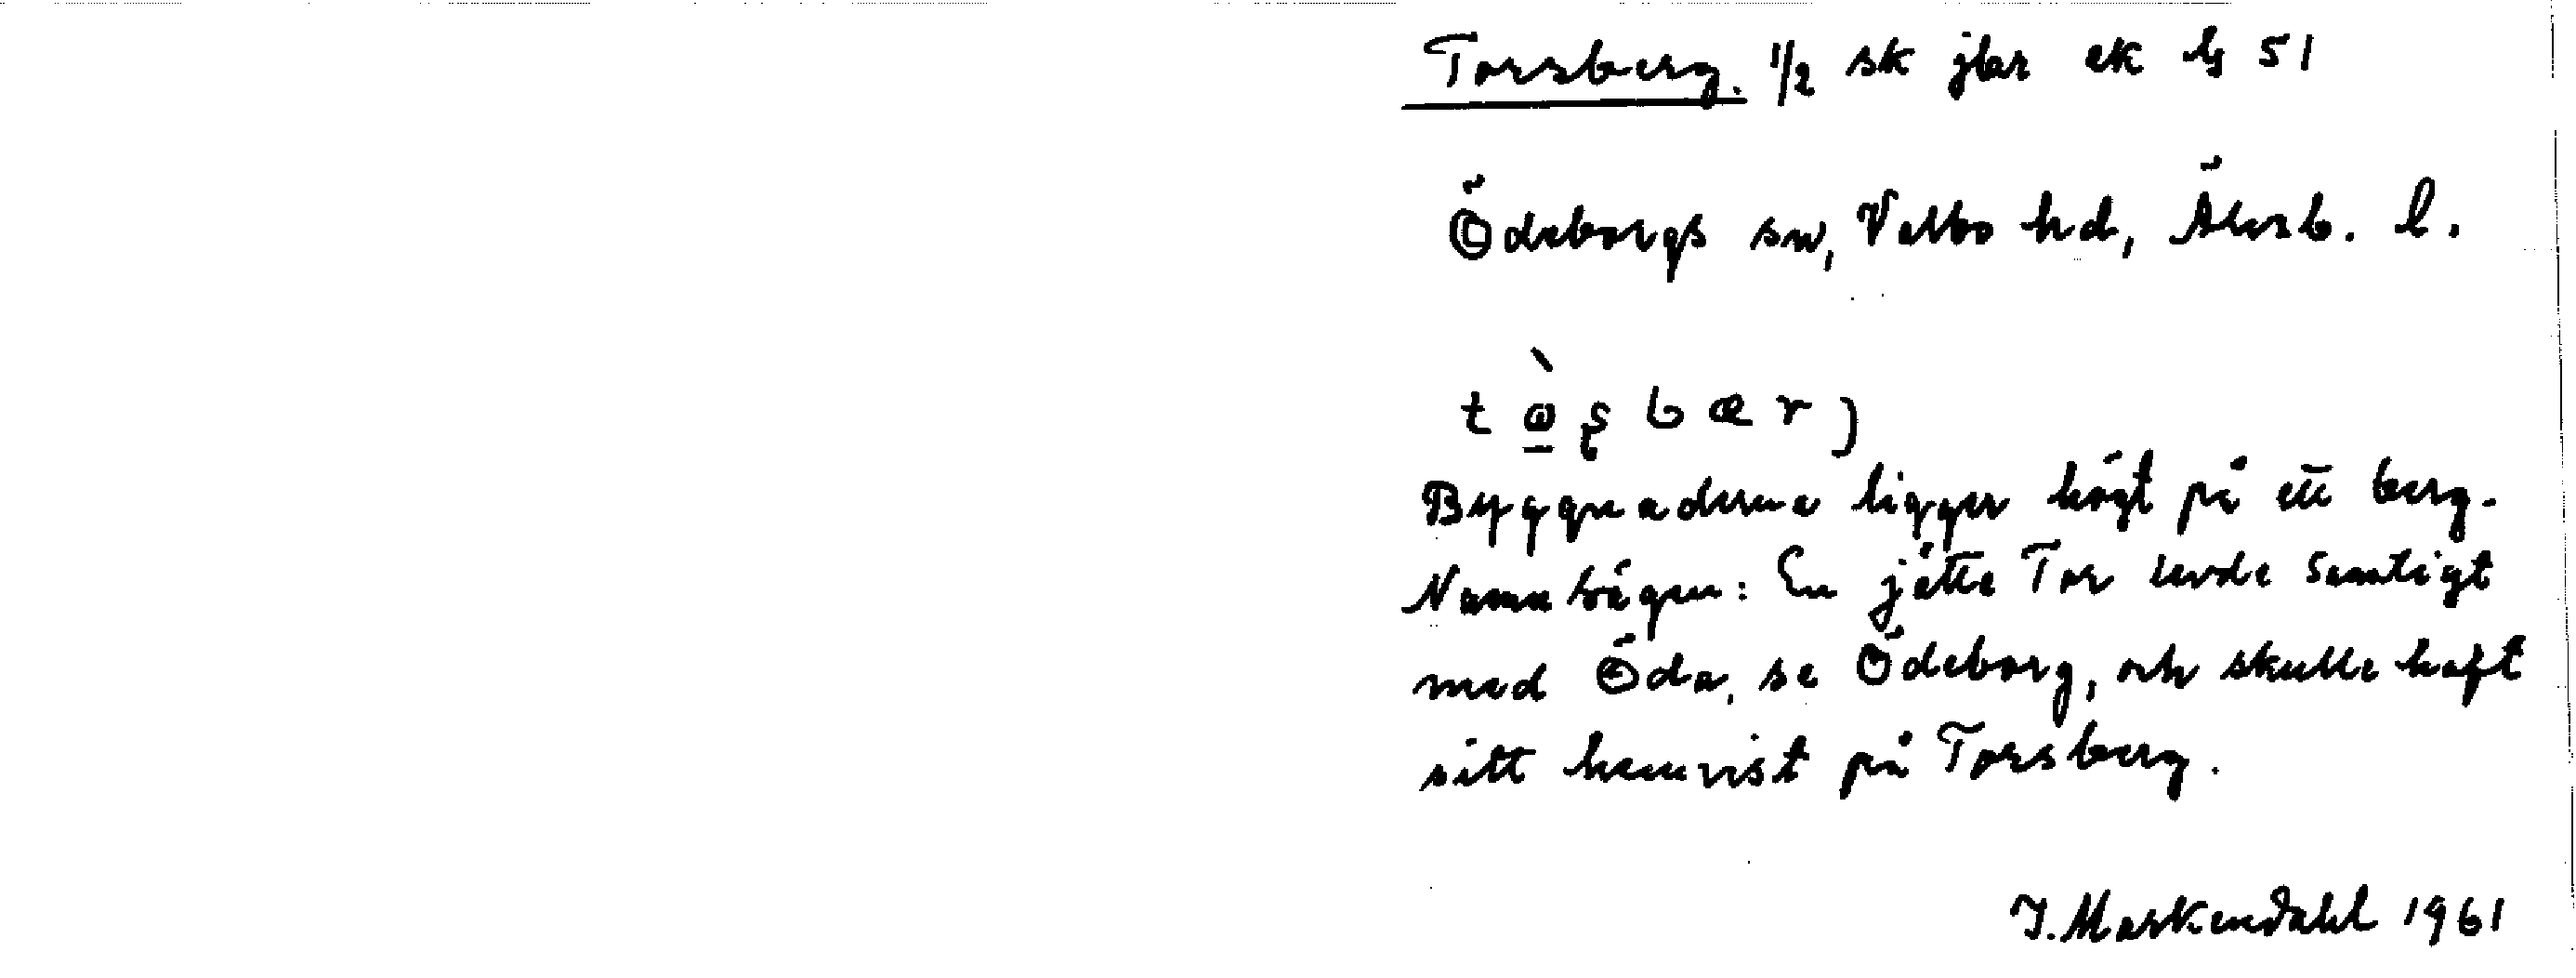 Torsberg. 1/2 sk jbr ek bl 51
Ödeborgs sn, Valbo hd, Älvsb. l.
Byggnaderna ligger högt på ett berg.
Namnsägen: En jätte Tor levde samtigt
med Öda, se Ödeborg, och skulle haft
sitt hemvist på Torsberg.
J. Markendahl 1961